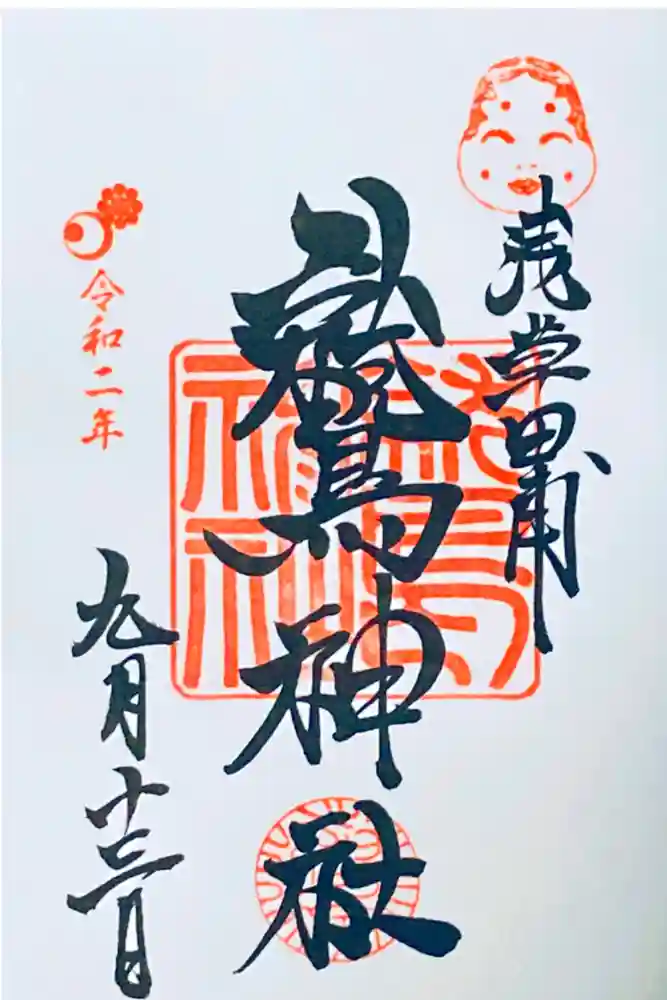 浅草田甫
鷲神社
令和二年
九月十三日